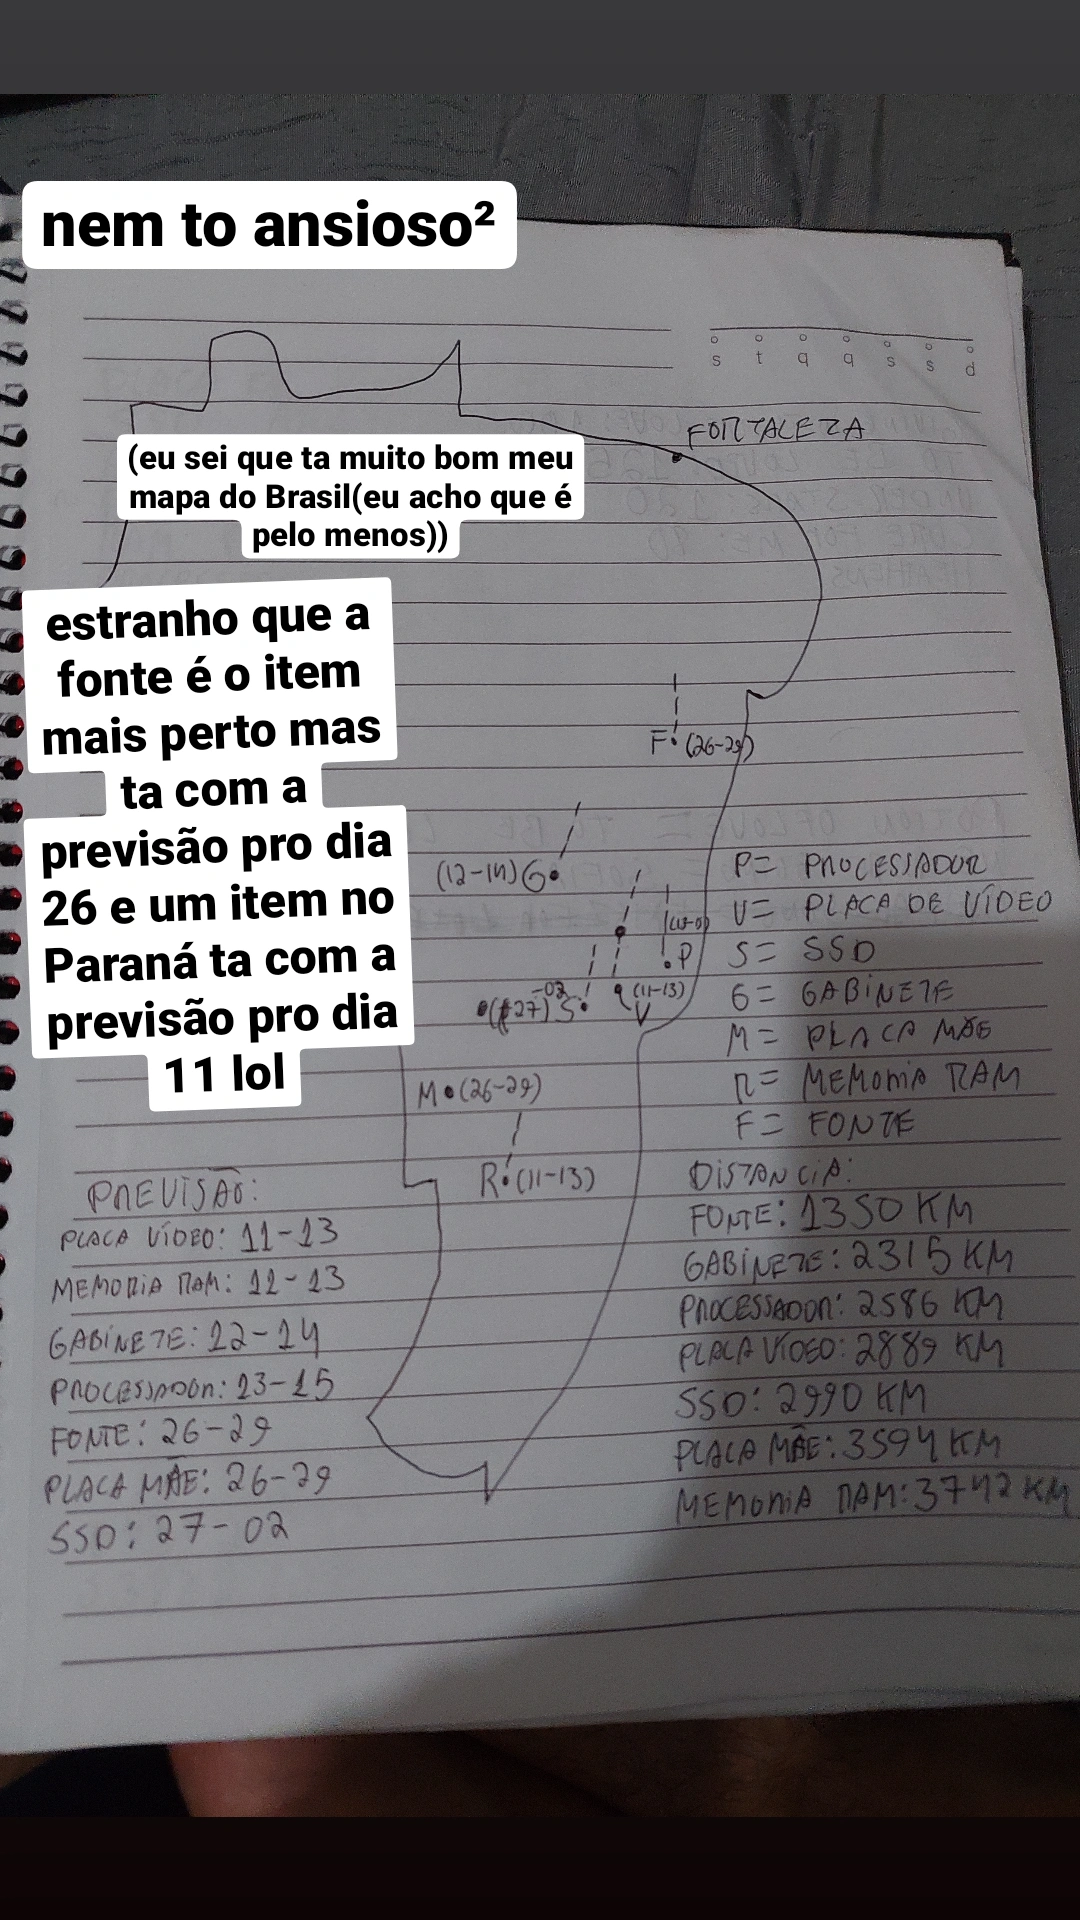 nem to ansioso²
s t q q s s d
FORTALEZA
(eu sei que ta muito bom meu
mapa do Brasil(eu acho que é
pelo menos))
estranho que a
fonte é o item
mais perto mas
ta com a
previsão pro dia
26 e um item no
Paraná ta com a
previsão pro dia
11 lol
F (26-29)
(12-14) G
P
(27-02) S
(11-13)
V
M (26-29)
R (11-13)
P= PROCESSADOR
V= PLACA DE VÍDEO
S= SSD
G= GABINETE
M= PLACA MÃE
R= MEMORIA RAM
F= FONTE
PREVISÃO:
PLACA VÍDEO: 11-13
MEMORIA RAM: 11-13
GABINETE: 12-14
PROCESSADOR: 13-15
FONTE: 26-29
PLACA MÃE: 26-29
SSD: 27-02
DISTANCIA:
FONTE: 1350 KM
GABINETE: 2315 KM
PROCESSADOR: 2586 KM
PLACA VIDEO: 2889 KM
SSD: 2990 KM
PLACA MÃE: 3594 KM
MEMORIA RAM: 3742 KM